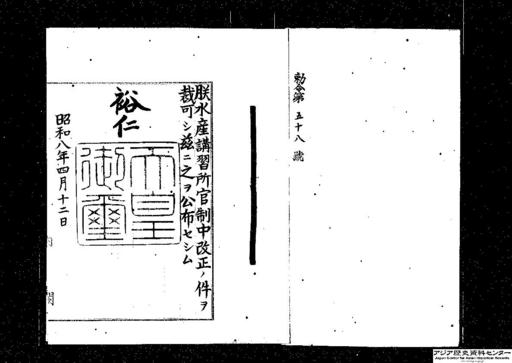 勅令第五十八號
朕水産講習所官制中改正ノ件ヲ
裁可シ茲ニ之ヲ公布セシム
裕仁
天皇
御璽
昭和八年四月十二日
アジア歴史資料センター
Japan Center for Asian Historical Records